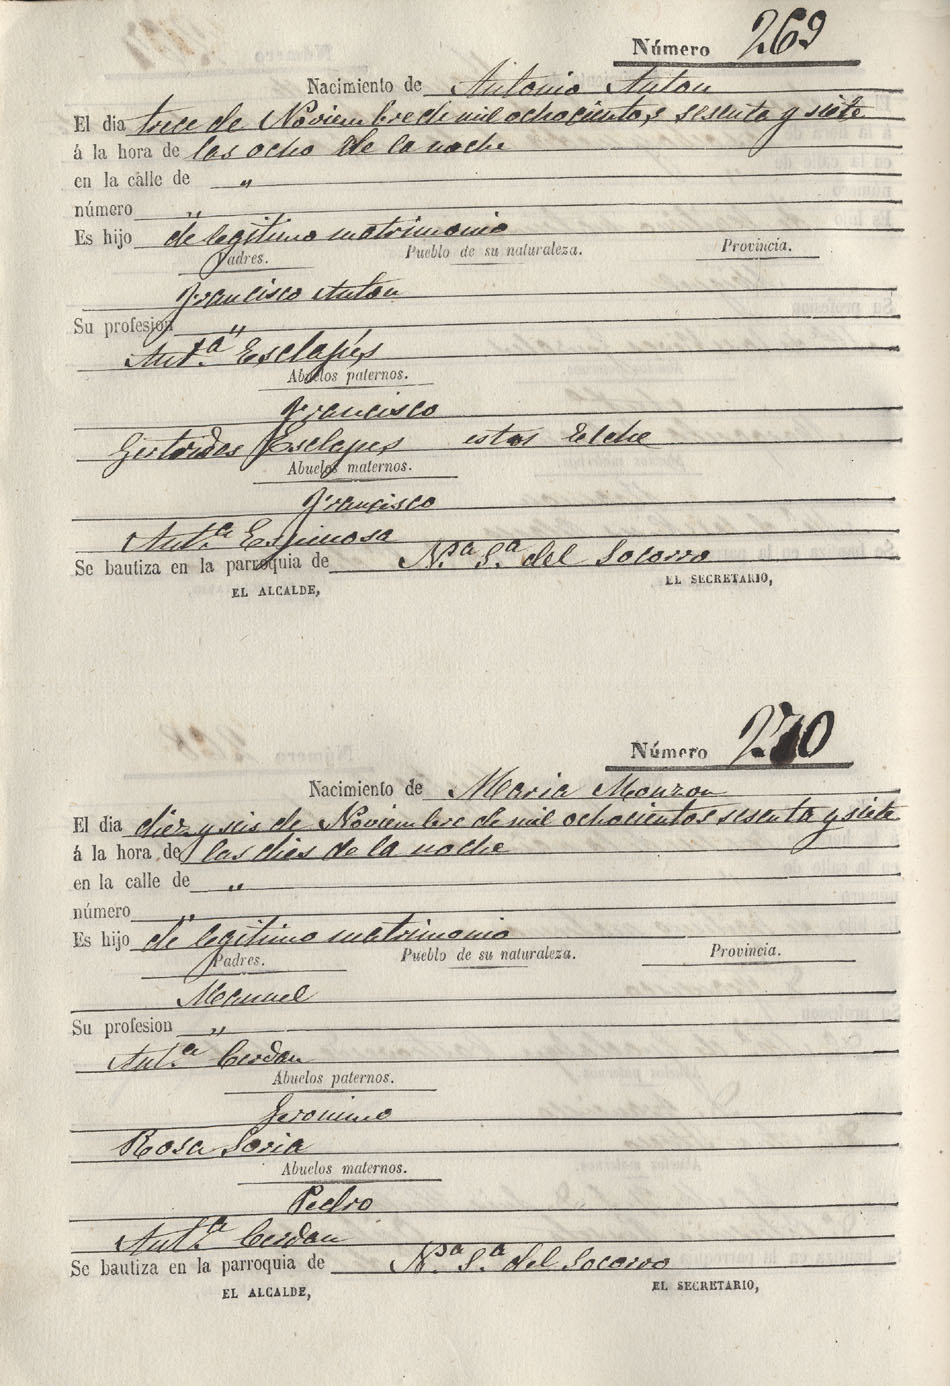 Número 269
Nacimiento de Antonio Anton
El dia trece de Noviembre de mil ochocientos sesenta y siete
á la hora de las ocho de la noche
en la calle de "
número "
Es hijo de legitimo matrimonio
Padres. Pueblo de su naturaleza. Provincia.
Francisco Anton
Su profesion "
Ant.ª Esclapés
Abuelos paternos.
Francisco
Gertrudes Esclapes estos Elche
Abuelos maternos.
Francisco
Ant.ª Espinosa
Se bautiza en la parroquia de N.ª S.ª del Socorro
EL ALCALDE, EL SECRETARIO,
Número 270
Nacimiento de Maria Monzon
El dia diez y seis de Noviembre de mil ochocientos sesenta y siete
á la hora de las dies de la noche
en la calle de "
número "
Es hijo de legitimo matrimonio
Padres. Pueblo de su naturaleza. Provincia.
Manuel
Su profesion "
Ant.ª Cerdan
Abuelos paternos.
Geronimo
Rosa Soria
Abuelos maternos.
Pedro
Ant.ª Cerdan
Se bautiza en la parroquia de N.ª S.ª del Socorro
EL ALCALDE, EL SECRETARIO,